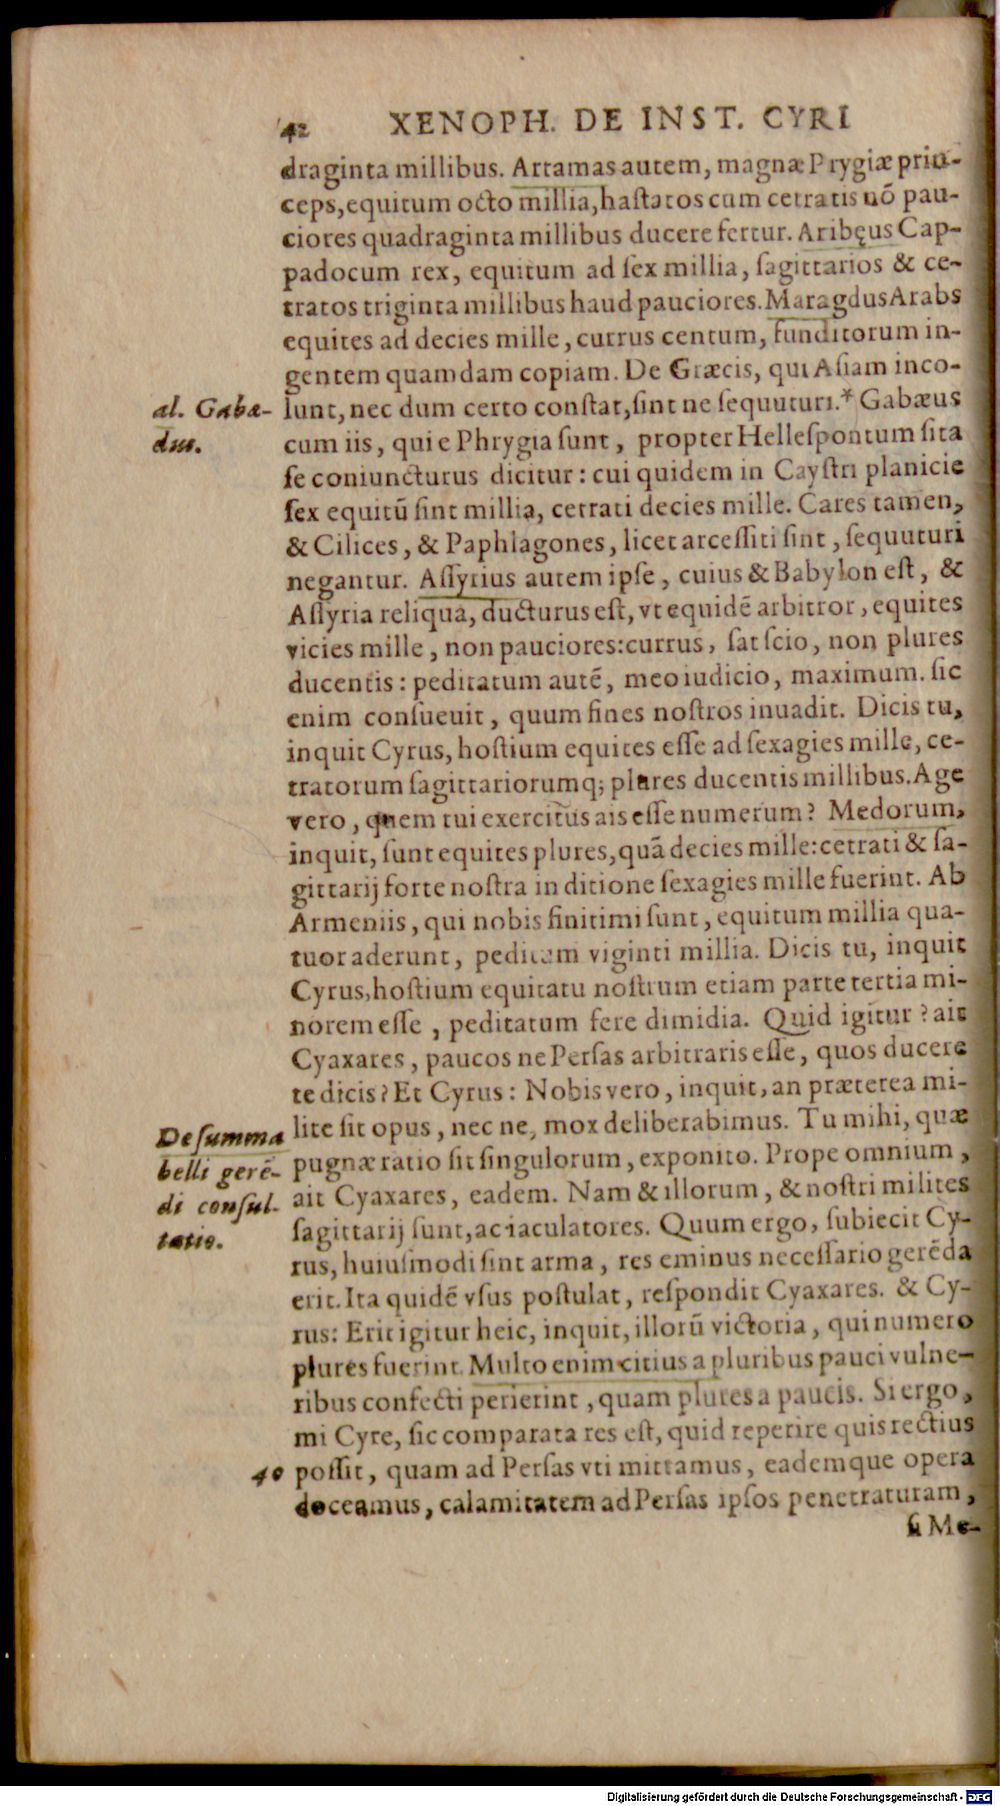 42 XENOPH. DE INST. CYRI
draginta millibus. Artamas autem, magnæ Prygiæ prin-
ceps, equitum octo millia, hastatos cum cetratis nō pau-
ciores quadraginta millibus ducere fertur. Aribęus Cap-
padocum rex, equitum ad sex millia, sagittarios & ce-
tratos triginta millibus haud pauciores. Maragdus Arabs
equites ad decies mille, currus centum, funditorum in-
gentem quamdam copiam. De Græcis, qui Asiam inco-
al. Gabæ-
dus.
lunt, nec dum certo constat, sint ne sequuturi.* Gabæus
cum iis, qui e Phrygia sunt, propter Hellespontum sita
se coniuncturus dicitur: cui quidem in Caystri planicie
sex equitū sint millia, cetrati decies mille. Cares tamen,
& Cilices, & Paphlagones, licet arcessiti sint, sequuturi
negantur. Assyrius autem ipse, cuius & Babylon est, &
Assyria reliqua, ducturus est, vt equidē arbitror, equites
vicies mille, non pauciores: currus, sat scio, non plures
ducentis: peditatum autē, meo iudicio, maximum. sic
enim consueuit, quum fines nostros inuadit. Dicis tu,
inquit Cyrus, hostium equites esse ad sexagies mille, ce-
tratorum sagittariorumq; plures ducentis millibus. Age
vero, quem tui exercitus ais esse numerum? Medorum,
inquit, sunt equites plures, quā decies mille: cetrati & sa-
gittarij forte nostra in ditione sexagies mille fuerint. Ab
Armeniis, qui nobis finitimi sunt, equitum millia qua-
tuor aderunt, peditum viginti millia. Dicis tu, inquit
Cyrus, hostium equitatu nostrum etiam parte tertia mi-
norem esse, peditatum fere dimidia. Quid igitur? ait
Cyaxares, paucos ne Persas arbitraris esse, quos ducere
te dicis? Et Cyrus: Nobis vero, inquit, an præterea mi-
De summa
belli gerē-
di consul-
tatio.
lite sit opus, nec ne, mox deliberabimus. Tu mihi, quæ
pugnæ ratio sit singulorum, exponito. Prope omnium,
ait Cyaxares, eadem. Nam & illorum, & nostri milites
sagittarij sunt, ac iaculatores. Quum ergo, subiecit Cy-
rus, huiusmodi sint arma, res eminus necessario gerēda
erit. Ita quidē vsus postulat, respondit Cyaxares. & Cy-
rus: Erit igitur heic, inquit, illorū victoria, qui numero
plures fuerint. Multo enim citius a pluribus pauci vulne-
ribus confecti perierint, quam plures a paucis. Si ergo,
mi Cyre, sic comparata res est, quid reperire quis rectius
40 possit, quam ad Persas vti mittamus, eademque opera
doceamus, calamitatem ad Persas ipsos penetraturam,
si Me-
Digitalisierung gefördert durch die Deutsche Forschungsgemeinschaft - DFG